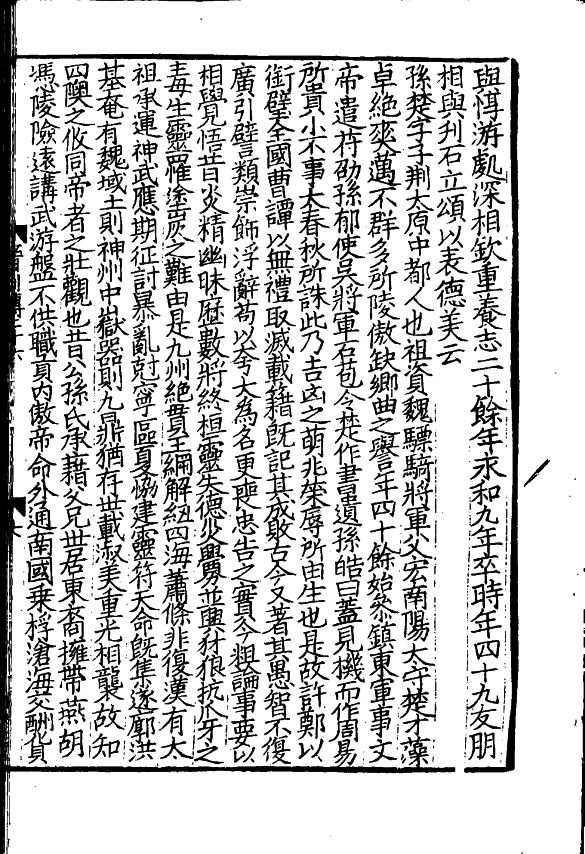 與惲游處深相欽重養志二十餘年永和九年卒時年四十九友朋
相與刋石立頌以表德美云
孫楚字子荆太原中都人也祖資魏驃騎將軍父宏南陽太守楚才藻
卓絶爽邁不群多所陵傲缺鄉曲之譽年四十餘始叅鎮東軍事文
帝遣符劭孫郁使吴將軍石苞令楚作書遺孫皓曰蓋見機而作周易
所貴小不事大春秋所誅此乃吉凶之萌兆榮辱所由生也是故許鄭以
銜璧全國曹譚以無禮取滅載籍既記其成敗古今又著其愚智不復
廣引譬類崇飾浮辭苟以夸大爲名更喪忠告之實今粗論事要以
相覺悟昔炎精幽昧歷數將終桓靈失德災釁並興豺狼抗爪牙之
毒生靈罹塗炭之難由是九州絶貫王綱解紐四海蕭條非復漢有太
祖承運神武應期征討暴亂尅寧區夏恊建靈符天命既集遂廓洪
基奄有魏域土則神州中嶽器則九鼎猶存世載淑美重光相襲故知
四隩之攸同帝者之壯觀也昔公孫氏承藉父兄世居東裔擁帶燕胡
馮陵險遠講武游盤不供職貢内傲帝命外通南國乗桴滄海交酬貨